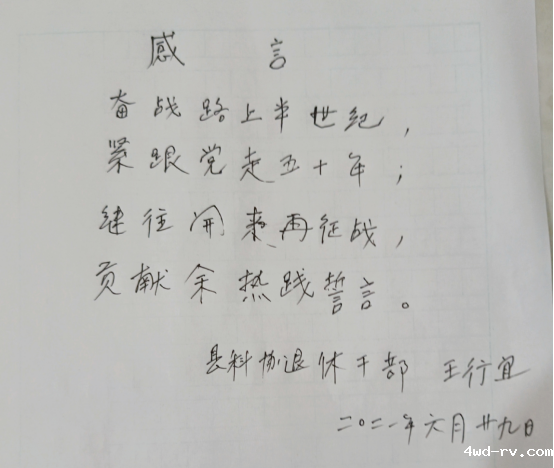 感言
奋战路上半世纪，
紧跟党走五十年；
继往开来再征战，
贡献余热践誓言。
县科协退休干部 王行宜
二〇二一年六月廿九日
4wd-rv.com